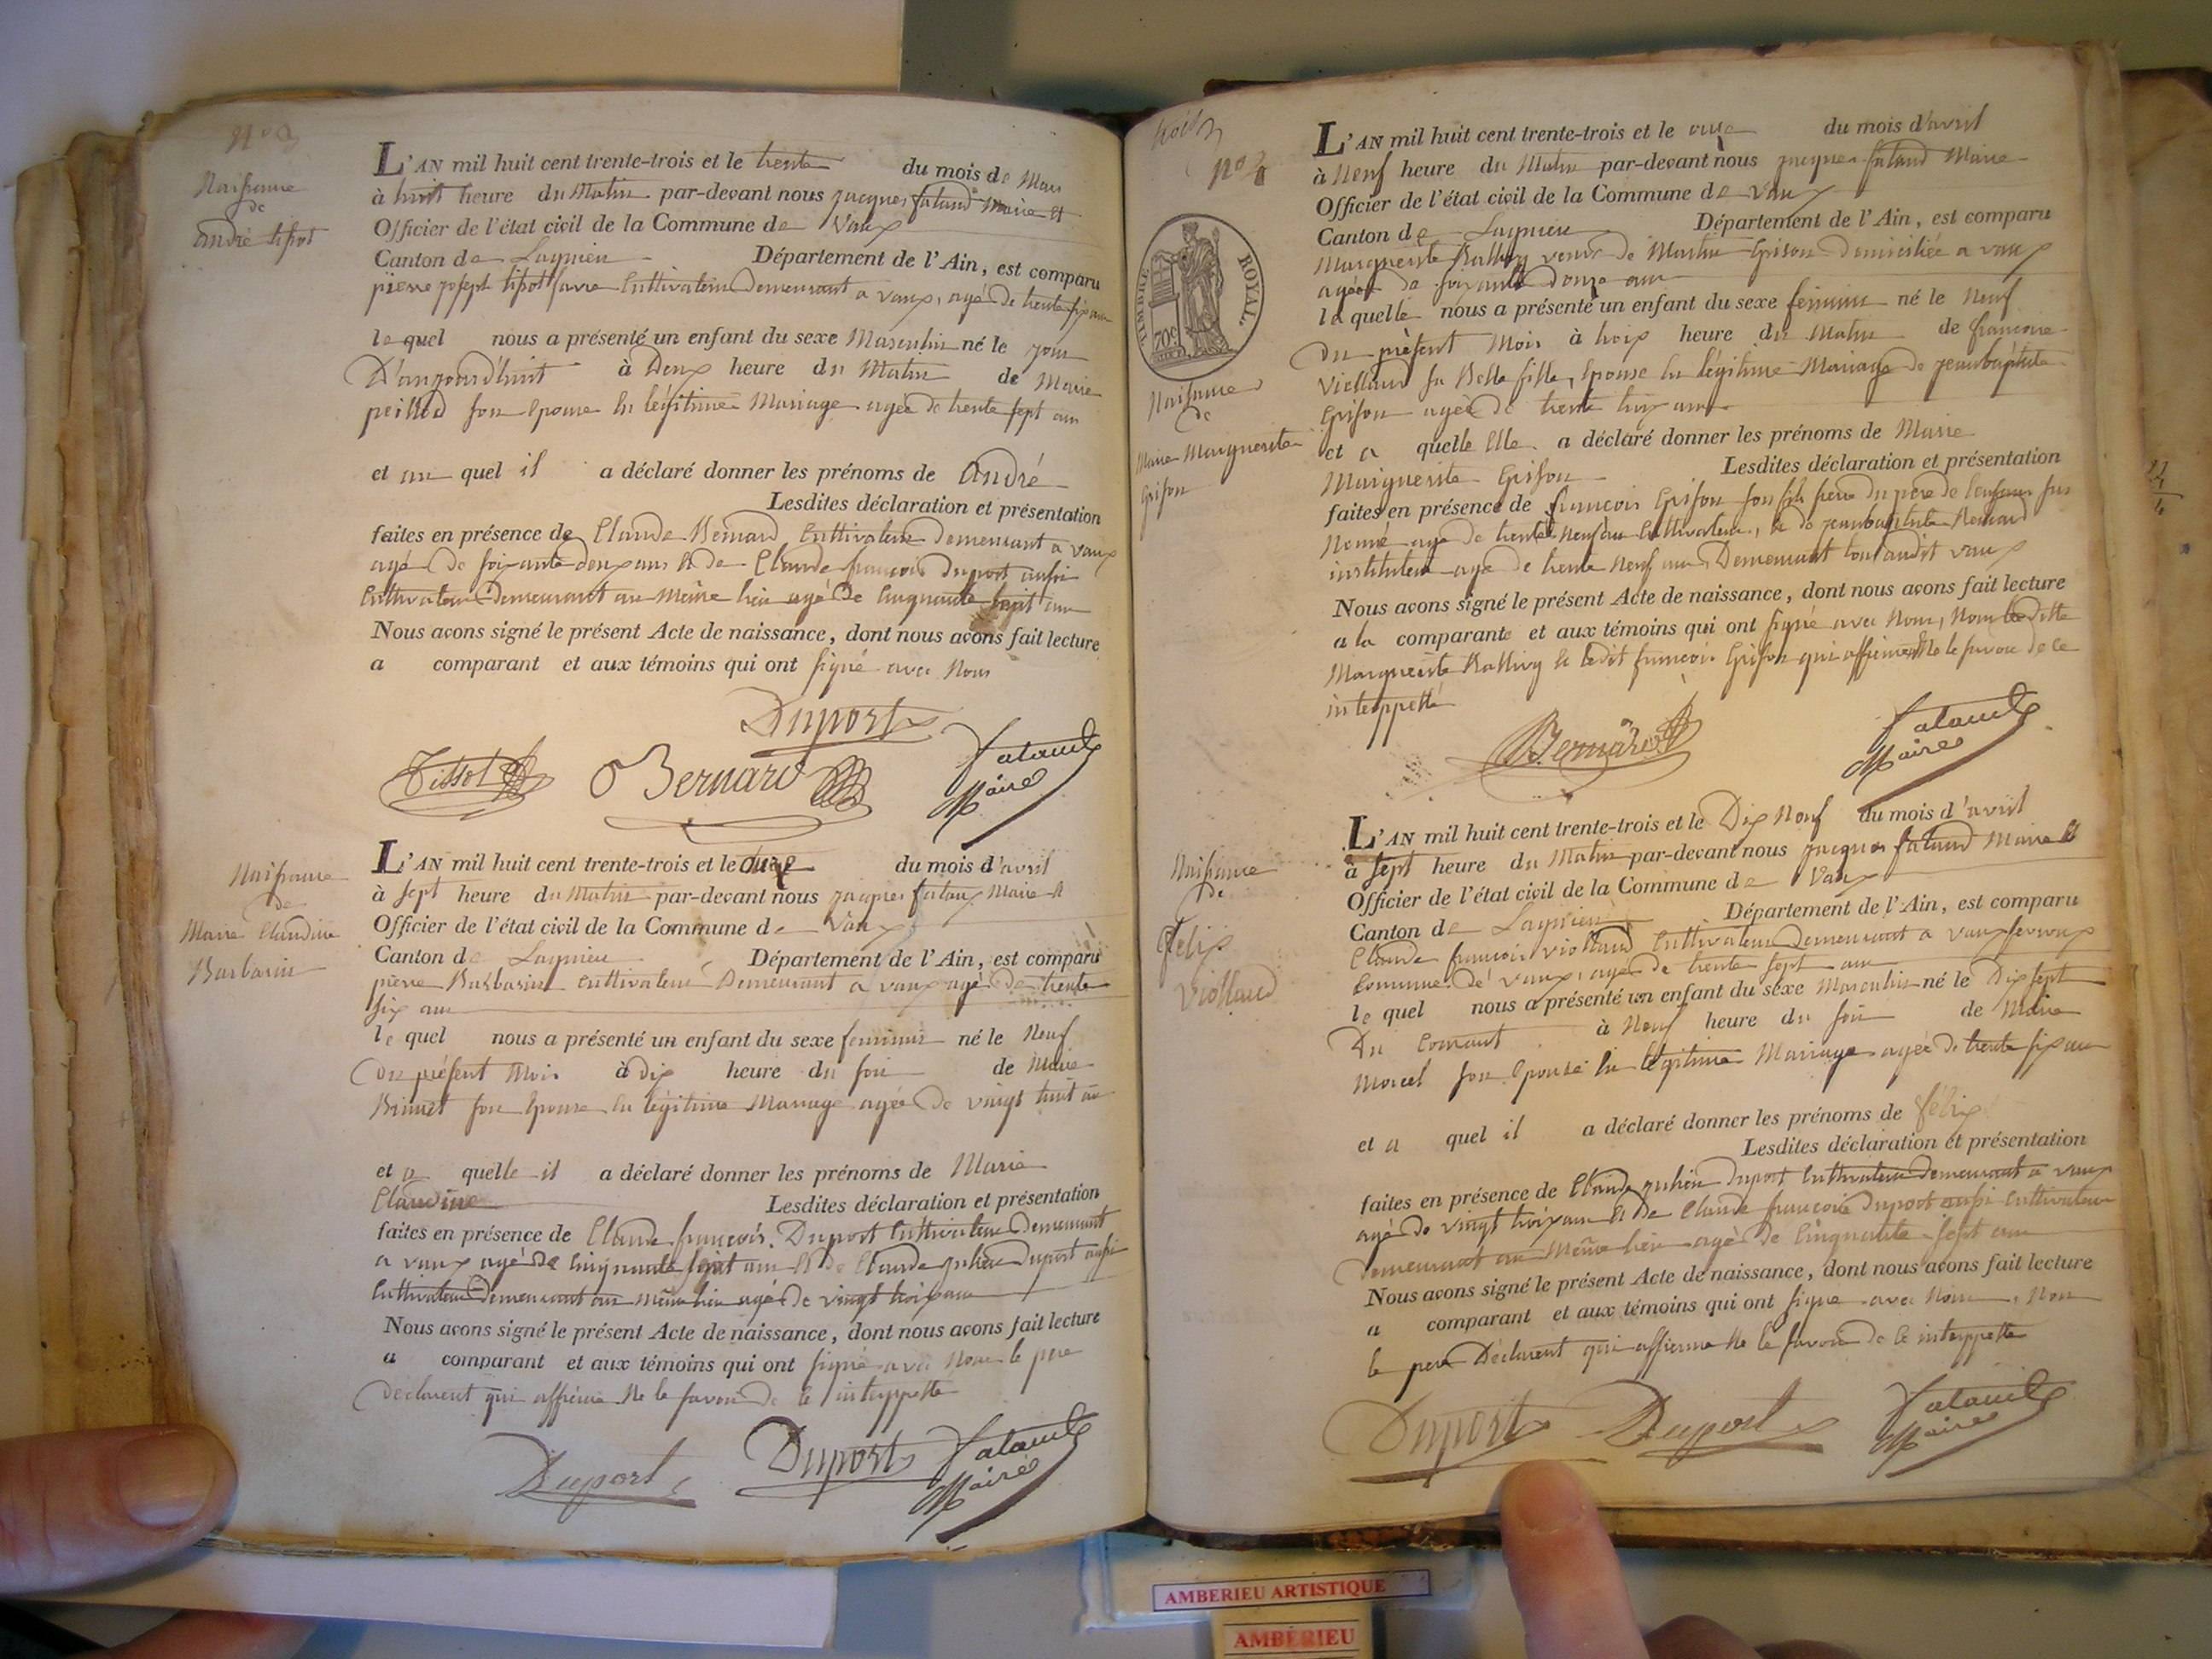 N° 3
Naissance
de
andré tissot
L'AN mil huit cent trente-trois et le trente du mois de Mars
à huit heure du Matin par-devant nous jacques falaud Maire et
Officier de l'état civil de la Commune de Vaux
Canton de Lagnieu Département de l'Ain, est comparu
pierre joseph tissot cultivateur Demeurant a vaux, agé de trente six ans
le quel nous a présenté un enfant du sexe Masculin né le jour
D'aujourd'huit à Deux heure du Matin de Marie
son Epouse En légitime Mariage agée de trente sept ans
et au quel il a déclaré donner les prénoms de André
Lesdites déclaration et présentation
faites en présence de Claude Bernard Cultivateur demeurant a vaux
agé de soixante deux ans et de Claude françois Duport aussi
Cultivateur Demeurant au Même lieu agé De Cinquante sept ans
Nous avons signé le présent Acte de naissance, dont nous avons fait lecture
a comparant et aux témoins qui ont signé avec Nous
Duport
Tissot Bernard falaud
Maire
Naissance
de
Marie Claudine
Barbarin
L'AN mil huit cent trente-trois et le onze du mois d'avril
à sept heure du Matin par-devant nous jacques falaud Maire et
Officier de l'état civil de la Commune de Vaux
Canton de Lagnieu Département de l'Ain, est comparu
pierre Barbarin cultivateur Demeurant a vaux agé de trente
six ans
le quel nous a présenté un enfant du sexe feminin né le Neuf
Du présent Mois à dix heure du soir de Marie
son Epouse En légitime Mariage agée De vingt huit ans
et a quelle il a déclaré donner les prénoms de Marie
Claudine Lesdites déclaration et présentation
faites en présence de Claude françois Duport Cultivateur Demeurant
a vaux agé De Cinquante sept ans et de Claude julien Duport aussi
Cultivateur Demeurant au même lieu agé De vingt trois ans
Nous avons signé le présent Acte de naissance, dont nous avons fait lecture
a comparant et aux témoins qui ont signé avec Nous le pere
declarent qui affirme Ne le savoir De ce interppellé
Duport Duport falaud
Maire
trois
N° 3
TIMBRE ROYAL
70c
Naissance
de
Marie Marguerite
Grison
L'AN mil huit cent trente-trois et le onze du mois d'avril
à Neuf heure du Matin par-devant nous jacques falaud Maire
Officier de l'état civil de la Commune de Vaux
Canton de Lagnieu Département de l'Ain, est comparu
Marguerite veuve de Martin Grison Domiciliée a vaux
agée de soixante douze ans
la quelle nous a présenté un enfant du sexe feminin né le Neuf
Du présent Mois à trois heure du Matin de francoise
Viollaud sa Belle fille, Epouse En légitime Mariage de jeanbaptiste
Grison agée De trente trois ans
et a quelle Elle a déclaré donner les prénoms de Marie
Marguerite Grison Lesdites déclaration et présentation
faites en présence de françois Grison son fils frere du pere de l'enfant sus
Nomé agé de trente neuf ans Cultivateur, et de jeanbaptiste Bernard
instituteur agé de trente Neuf ans Demeurant tous audit vaux
Nous avons signé le présent Acte de naissance, dont nous avons fait lecture
a la comparante et aux témoins qui ont signé avec Nous, Non laditte
Marguerite et ledit francois Grison qui affirment Ne le savoir De ce
interppellé
Bernard falaud
Maire
Naissance
de
felix
Viollaud
L'AN mil huit cent trente-trois et le Dix Neuf du mois d'avril
à sept heure du Matin par-devant nous jacques falaud Maire et
Officier de l'état civil de la Commune de Vaux
Canton de Lagnieu Département de l'Ain, est comparu
Claude francois viollaud Cultivateur Demeurant a vaux
Commune De vaux, agé de trente sept ans
le quel nous a présenté un enfant du sexe Masculin né le Dix sept
Du Courant à Neuf heure du soir de Marie
Morel son Epouse En légitime Mariage agée de trente six ans
et a quel il a déclaré donner les prénoms de félix
Lesdites déclaration et présentation
faites en présence de Claude julien Duport Cultivateur Demeurant a vaux
agé De vingt trois ans et de Claude francois Duport aussi Cultivateur
Demeurant au Même lieu agé De Cinquante sept ans
Nous avons signé le présent Acte de naissance, dont nous avons fait lecture
a comparant et aux témoins qui ont signé avec Nous, Non
le pere Déclarent qui affirme Ne le savoir de ce interppellé
Duport Duport falaud
Maire
AMBERIEU ARTISTIQUE
AMBÉRIEU